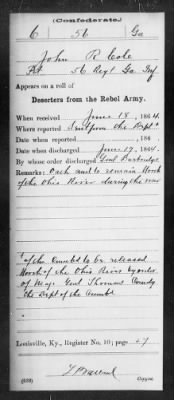 (Confederate.)
6 56 Ga
John R. Cole
Pvt. 56 Regt Ga Inf.
Appears on a roll of
Deserters from the Rebel Army.
When received June 18, 1864
Where reported Sent from the Dept *
Date when reported , 186
Date when discharged June 19, 1864.
By whose order discharged Genl
Remarks: Oath and to remain North
of the Ohio River during the war
* of the Cumbd to be released
North of the Ohio River by order
of Maj Genl Thomas Comdg
the Dept of the Cumbd.
Louisville, Ky., Register No. 10; page 47
(639) Copyist.